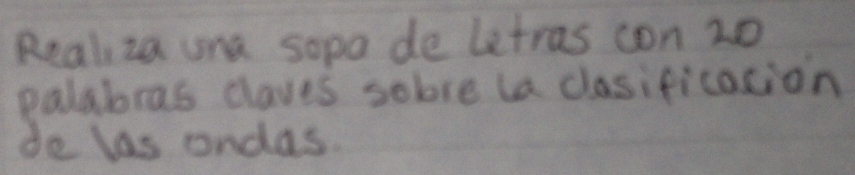 Realiza una sopa de letras con 20
palabras claves sobre la clasificación
de las ondas.